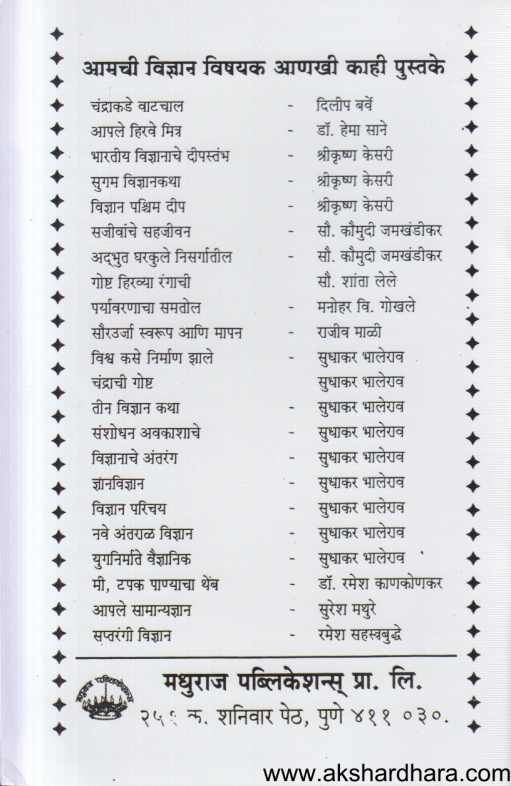 आमची विज्ञान विषयक आणखी काही पुस्तके
चंद्राकडे वाटचाल - दिलीप बर्वे
आपले हिरवे मित्र - डॉ. हेमा साने
भारतीय विज्ञानाचे दीपस्तंभ - श्रीकृष्ण केसरी
सुगम विज्ञानकथा - श्रीकृष्ण केसरी
विज्ञान पश्चिम दीप - श्रीकृष्ण केसरी
सजीवांचे सहजीवन - सौ. कौमुदी जमखंडीकर
अद्‌भुत घरकुले निसर्गातील - सौ. कौमुदी जमखंडीकर
गोष्ट हिरव्या रंगाची सौ. शांता लेले
पर्यावरणाचा समतोल - मनोहर वि. गोखले
सौरउर्जा स्वरूप आणि मापन - राजीव माळी
विश्व कसे निर्माण झाले - सुधाकर भालेराव
चंद्राची गोष्ट सुधाकर भालेराव
तीन विज्ञान कथा - सुधाकर भालेराव
संशोधन अवकाशाचे - सुधाकर भालेराव
विज्ञानाचे अंतरंग - सुधाकर भालेराव
ज्ञानविज्ञान - सुधाकर भालेराव
विज्ञान परिचय - सुधाकर भालेराव
नवे अंतराळ विज्ञान - सुधाकर भालेराव
युगनिर्माते वैज्ञानिक - सुधाकर भालेराव
मी, टपक पाण्याचा थेंब - डॉ. रमेश काणकोणकर
आपले सामान्यज्ञान - सुरेश मथुरे
सप्तरंगी विज्ञान - रमेश सहस्त्रबुद्धे
मधुराज पब्लिकेशन्स् प्रा. लि.
शनिवार पेठ, पुणे ४११ ०३०.
www.akshardhara.com